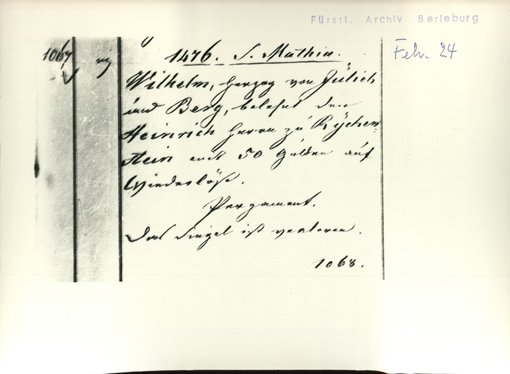 Fürstl. Archiv Berleburg
Febr. 24
1067
1476. S. Mathiae.
Wilhelm, Herzog von Jülich
und Berg, belehnt den
Heinrich Herrn zu Rychen-
stein mit 50 Gulden auf
Wiederlöse.
Pergament.
Das Siegel ist verloren.
1068.